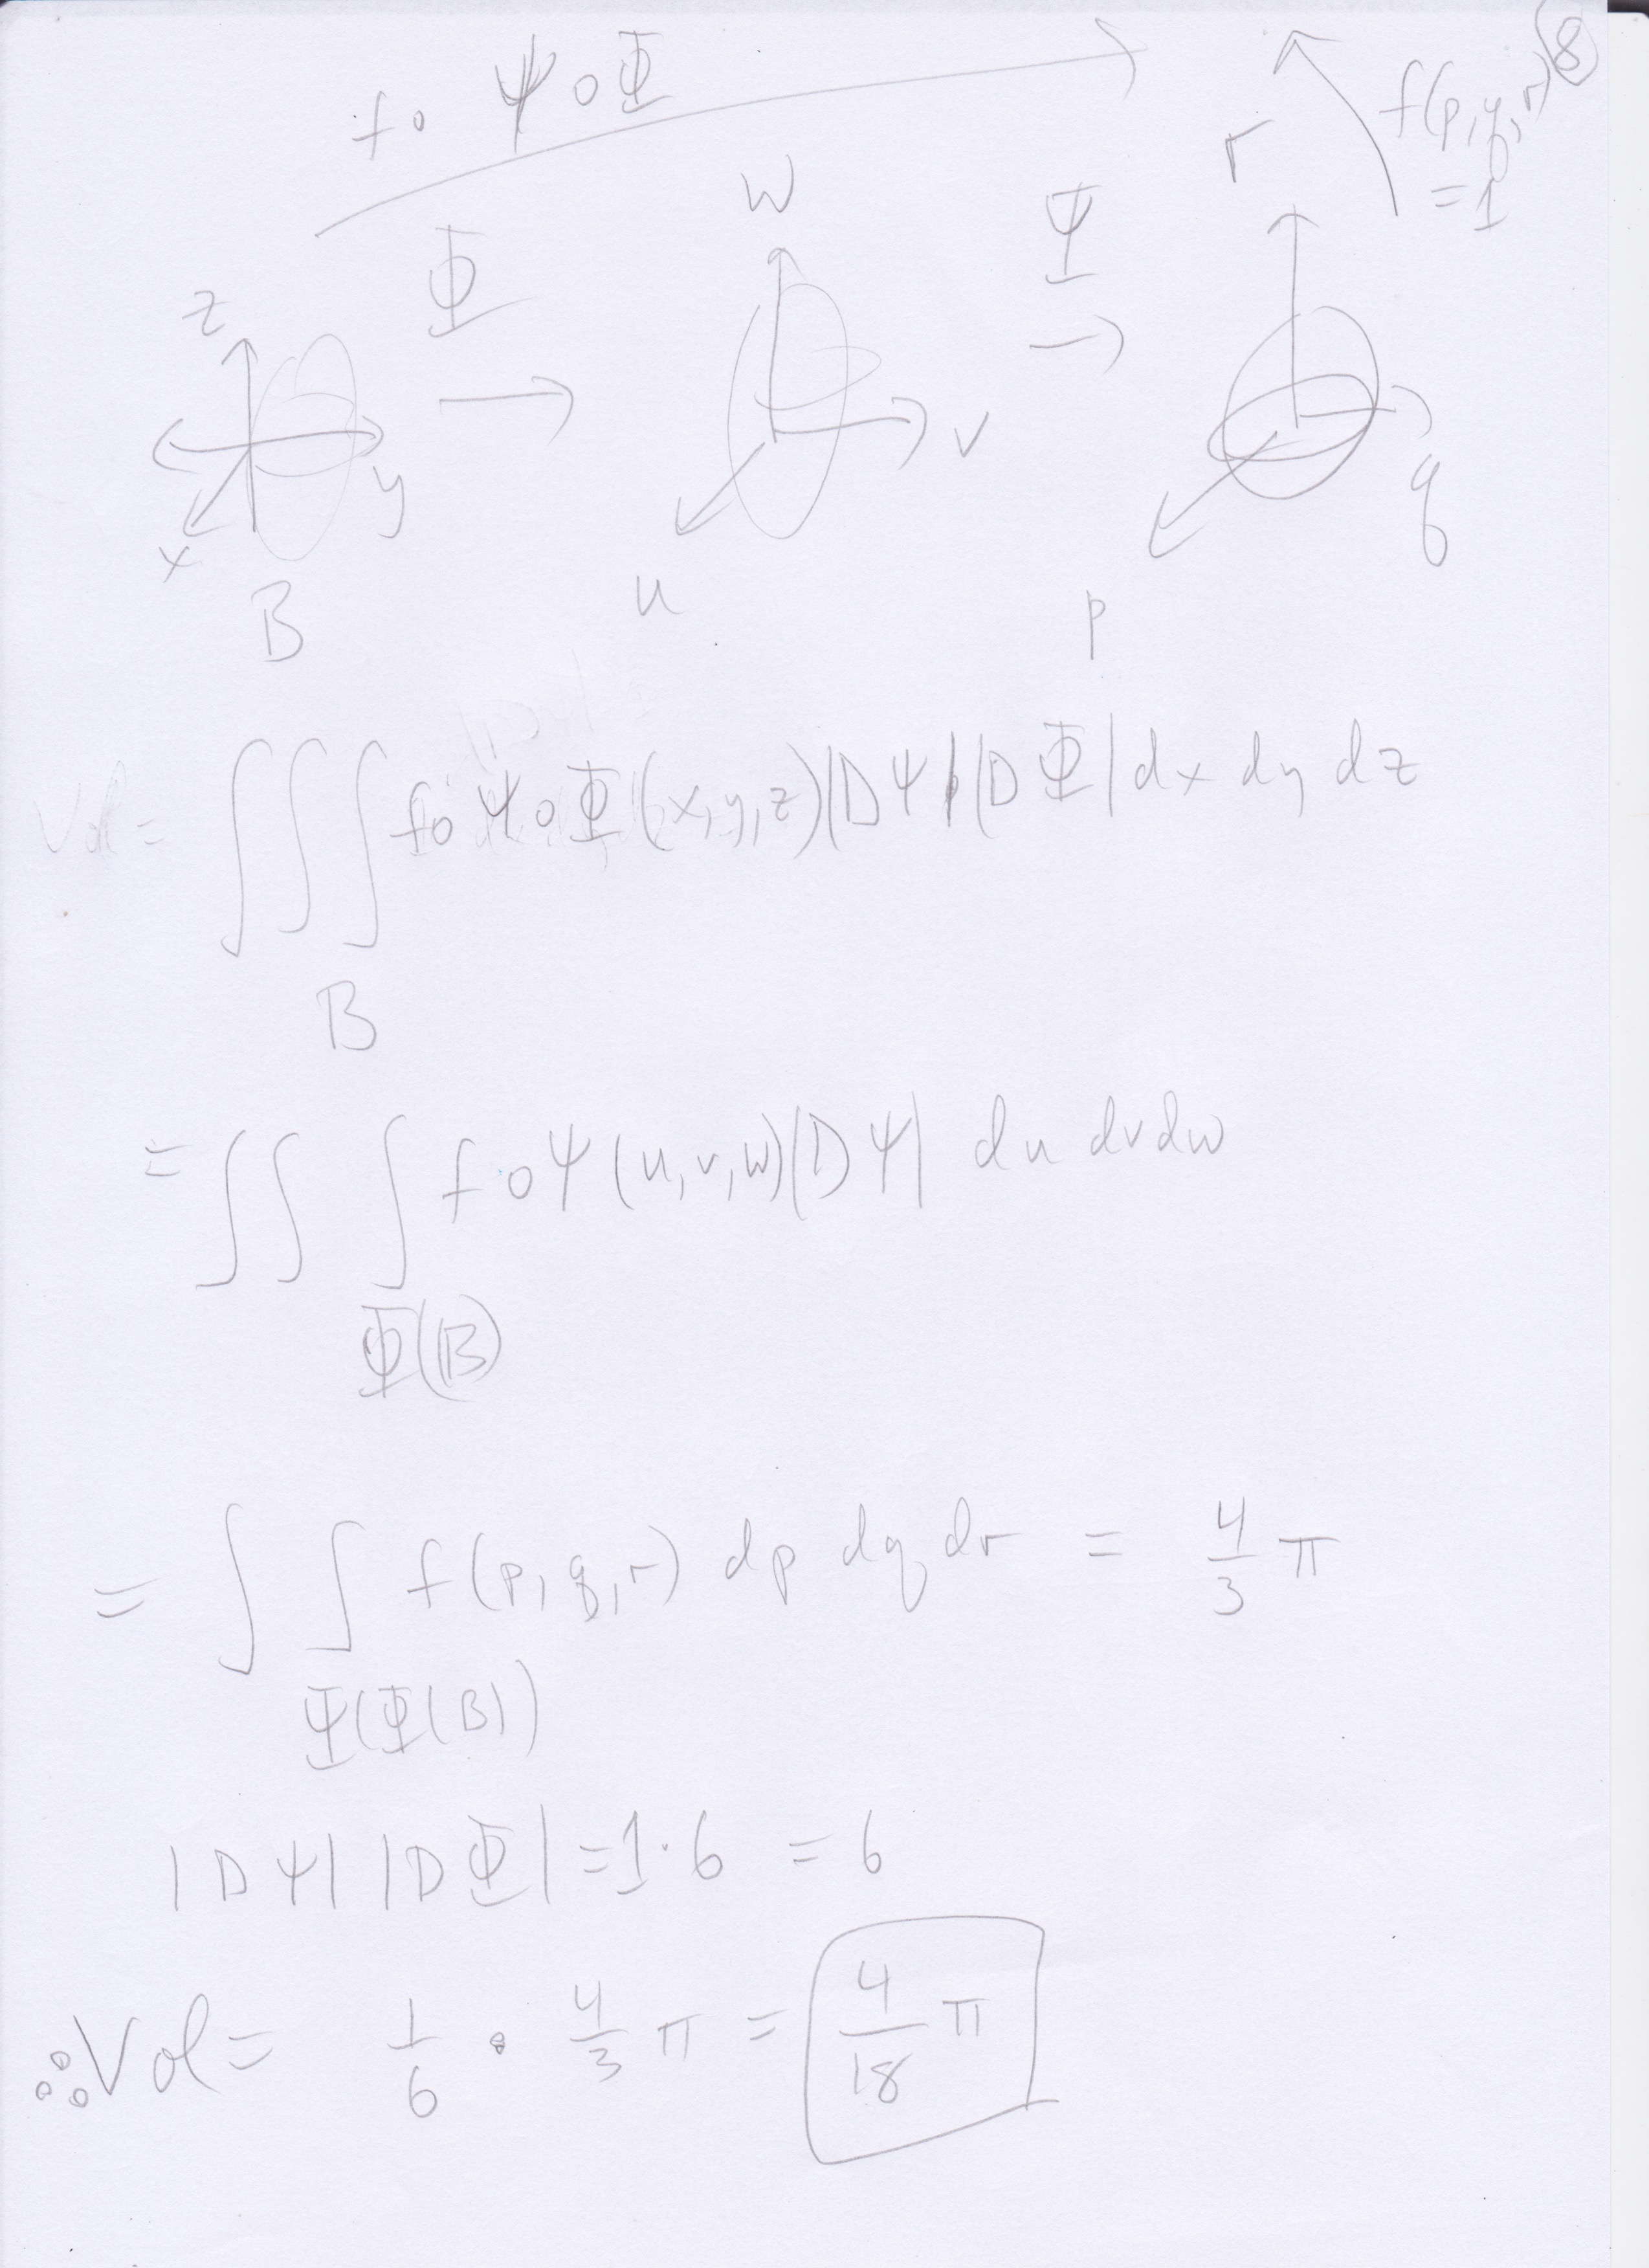 8
f∘Ψ∘Φ
f(p,q,r)
=1
z Φ w Ψ r
x y u v p q
B
Vol = ∫∫∫ f∘Ψ∘Φ(x,y,z)|DΨ||DΦ|dx dy dz
B
= ∫∫∫ f∘Ψ(u,v,w)|DΨ| du dv dw
Φ(B)
= ∫∫ f(p,q,r) dp dq dr = 4/3 π
Ψ(Φ(B))
|DΨ||DΦ| = 1·6 = 6
∴ Vol = 1/6 · 4/3 π = 4/18 π